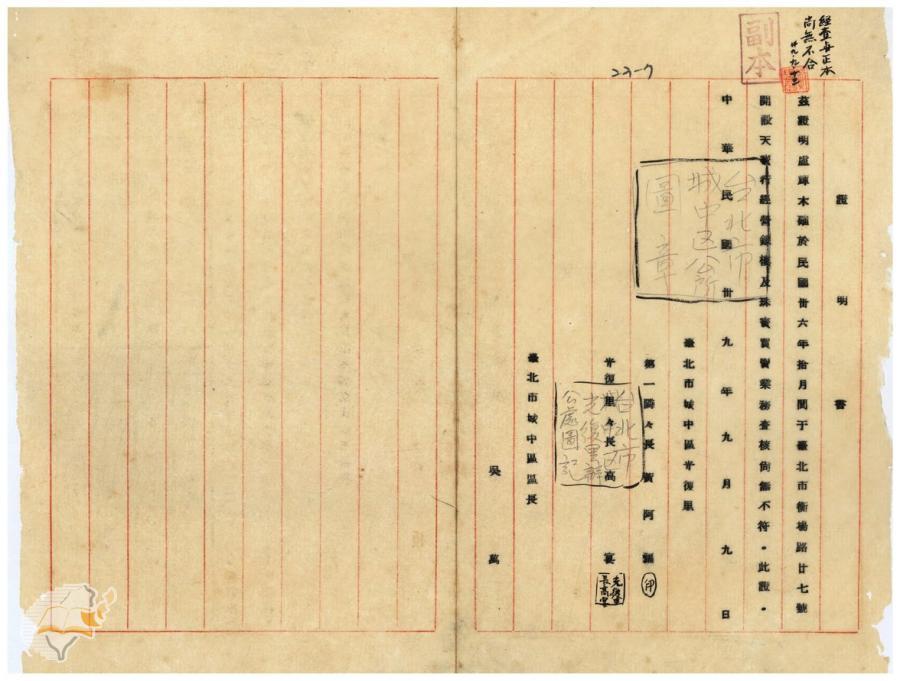 證明書
茲證明盧琢木確於民國卅六年拾月間于臺北市衡陽路廿七號
開設天寶行經營銀樓及珠寶買賣業務查核尚無不符。此證。
中華民國卅九年九月九日
臺北市城中區光復里
第一鄰々長黃阿
印
光復里々長高宴
光復里長高宴
臺北市城中區區長
吳萬
副本
經查與正本
尚無不合
卅九、九、十三
23-7
台北市
城中区公所
圖章
台北市
城中区
光復里辦
公處圖記